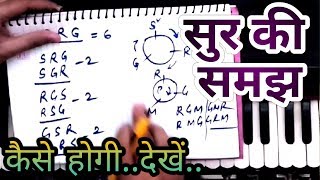 SRG = 6
SRG
SGR - 2
RGS
RSG - 2
GSR - 2
S
R
G
R
G
M
RGM
RMG
GRM
सुर की
समझ
कैसे होगी..देखें..